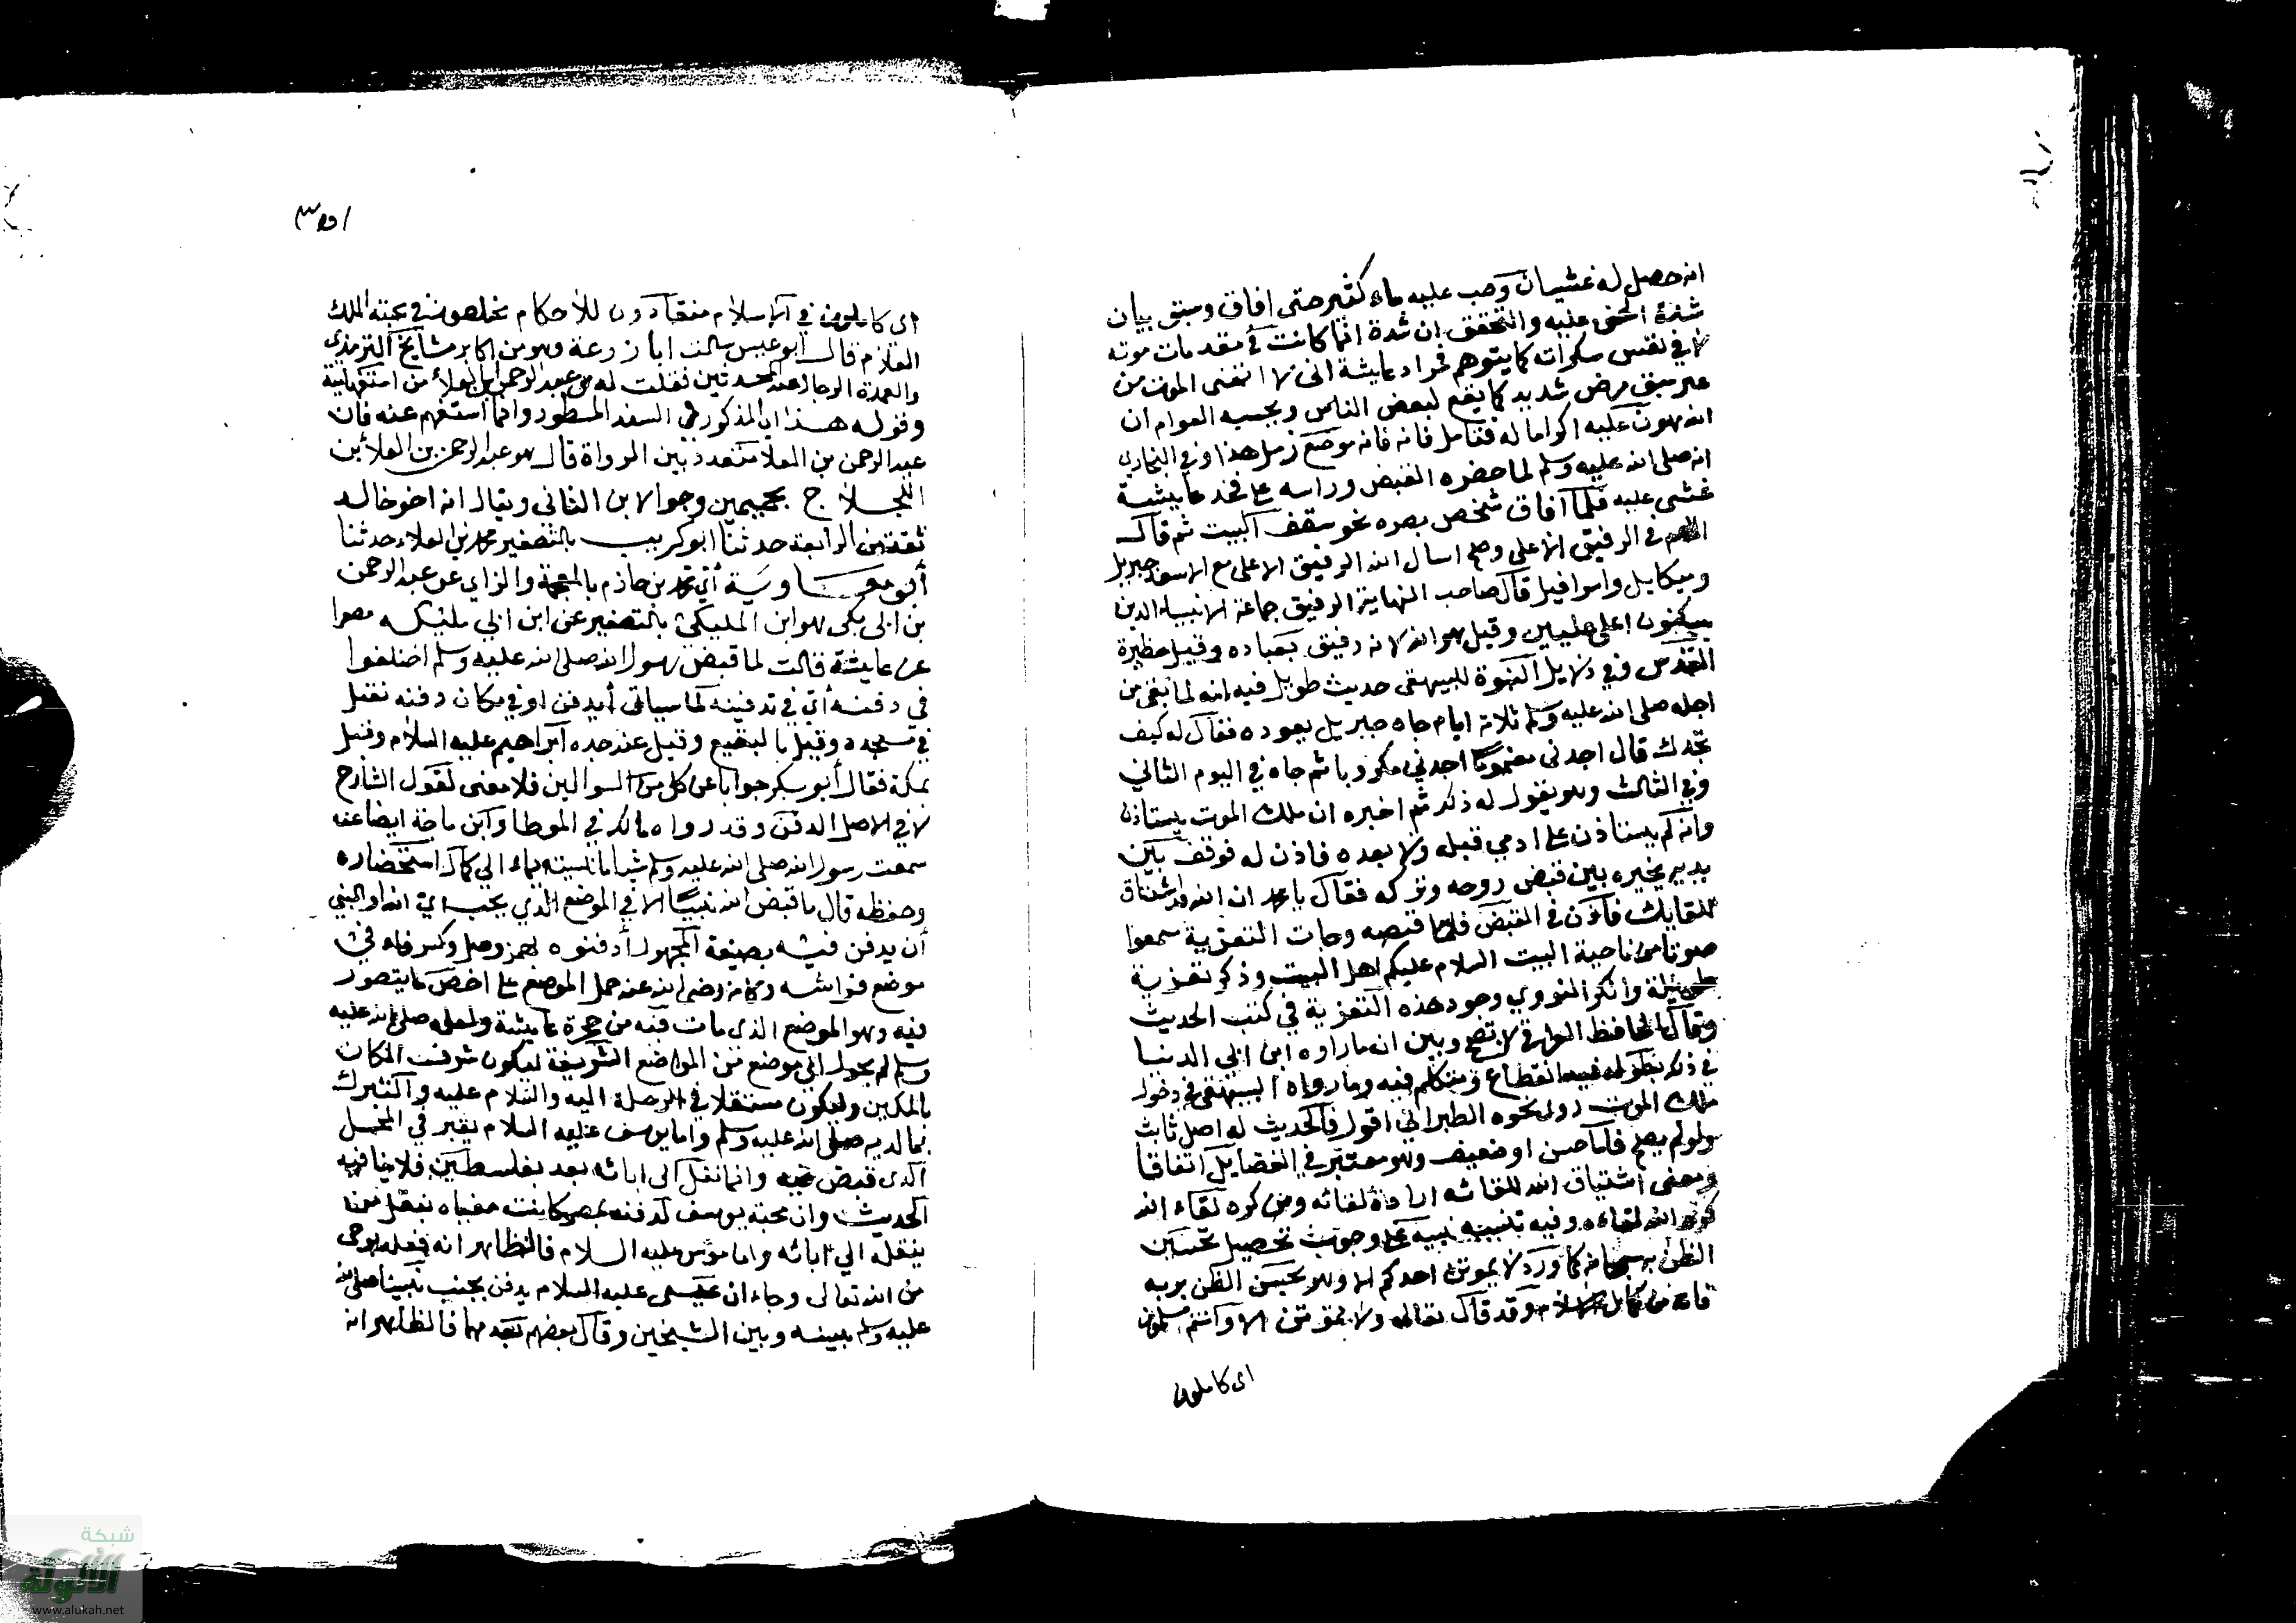 انه حصل له غشيان وصب عليه ماء كثير حتى افاق وسبق بيان
شدة الحمى عليه والتحقق ان شدة انما كانت في مقدمات موته
لا في نفس سكراته كما يتوهم فمراد عايشة اني لا اتمنى الموت من
غير سبق مرض شديد كما يقع لبعض الناس ويحسبه العوام ان
الله هون عليه اكراما له فتامل فانه فانه موضع زلل هذا وفي البخاري
انه صلى الله عليه وسلم لما حضره القبض وراسه على فخذ عايشة
غشى عليه فلما افاق شخص بصره نحو سقف البيت ثم قال
اللهم في الرفيق الاعلى وصح اسال الله الرفيق الاعلى مع الاسعد جبريل
وميكايل واسرافيل قال صاحب النهاية الرفيق جماعة الانبياء الذين
يسكنون اعلى عليين وقيل هو الله لانه رفيق بعباده وقيل حظيرة
القدس وفي دلايل النبوة للبيهقي حديث طويل فيه انه لما بقى من
اجله صلى الله عليه وسلم ثلاثة ايام جاه جبريل يعوده فقال له كيف
تجدك قال اجدني مغموما اجدني مكروبا ثم جاه في اليوم الثاني
وفي الثالث وهو يقول له ذلك ثم اخبره ان ملك الموت يستاذن
وانه لم يستاذن على ادمي قبله ولا بعده فاذن له فوقف بين
يديه يخيره بين قبض روحه وتركه فقال يا محمد ان الله قد اشتاق
للقايك فاذن في القبض فلما قبضه وجات التعزية سمعوا
صوتا من ناحية البيت السلام عليكم اهل البيت وذكر تعزية
طويلة وانكر النووي وجود هذه التعزية في كتب الحديث
وقال الحافظ العراقي لا تصح وبين ان ما رواه ابن ابي الدنيا
في ذكر بطوله فيه انقطاع ومتكلم فيه وما رواه البيهقي في دخول
ملك الموت روى نحوه الطبراني اقول فالحديث له اصل ثابت
ولو لم يصح فاما حسن او ضعيف وهو معتبر في الفضايل اتفاقا
ومعنى اشتياق الله للقائه ارادة لقائه ومن كره لقاء الله
كره الله لقاءه وفيه تنبيه نبيه على وجوب تحصيل تحسين
الظن به سبحانه كما ورد لا يموتن احدكم الا وهو يحسن الظن بربه
فانه من كمال الاسلام وقد قال تعالى ولا تموتن الا وانتم مسلمون
اى كاملون
اى كاملون في الاسلام منقادون للاحكام مخلصون في محبته الملك
العلام قال ابو عيسى سالت ابا زرعة وهو من اكابر مشايخ الترمذي
والعمدة الرجال عند المحدثين فقلت له من عبد الرحمن بن العلاء من استفهامية
وقوله هذا اي المذكور في السند المسطور وانما استفهم عنه فان
عبد الرحمن بن العلا متعدد بين الرواة قال هو عبد الرحمن بن العلا بن
اللجلاج بجيمين وجر الابن الثاني ويقال انه اخو خالد
ثقة من الرابعة حدثنا ابو كريب بالتصغير محمد بن العلاء حدثنا
ابو معاوية أي محمد بن خازم بالمعجمة والزاي عن عبد الرحمن
بن ابي بكر هو ابن المليكي بالتصغير عن ابن ابي مليكه مصغرا
عن عايشة قالت لما قبض رسول الله صلى الله عليه وسلم اختلفوا
في دفنه أي في تدفينه كما سياتي أيدفن او في مكان دفنه فقيل
في مسجده وقيل بالبقيع وقيل عند جده ابراهيم عليه السلام وقيل
بمكة فقال أبو بكر جوابا عن كل من السوالين فلا معنى لقول الشارح
لا في الاصل الدفن وقد رواه مالك في الموطا وابن ماجة ايضا عنه
سمعت رسول الله صلى الله عليه وسلم شيا ما نسيته ايماء الى كمال استحضاره
وحفظه قال ما قبض الله نبيا الا في الموضع الذي يحب اي الله او النبي
أن يدفن فيه بصيغة المجهول أدفنوه بهمز وصل وكسر فاء في
موضع فراشه وكانه رضي الله عنه حمل الموضع على اخص ما يتصور
فيه وهو الموضع الذي مات فيه من حجرة عايشة ولعله صلى الله عليه
وسلم لم يحول الى موضع من المواضع الشريفة ليكون شرفت المكان
بالمكين وليكون مستقلا في الرحلة اليه والسلام عليه والتبرك
بما لديه صلى الله عليه وسلم واما يوسف عليه السلام بقبر في المحل
الذي قبض فيه وانما نقل الى ابائه بعد بفلسطين فلا ينافيه
الحديث وان محبة يوسف لدفنه بمصر كانت مغياه بنقل من
ينقله الي ابائه واما موسى عليه السلام فالظاهر انه فعله بوحي
من الله تعالى وجاء ان عيسى عليه السلام يدفن بجنب نبينا صلى الله
عليه وسلم بينه وبين الشيخين وقال بعضهم بعدهما فالظاهر انه
شبكة
الألوكة
www.alukah.net